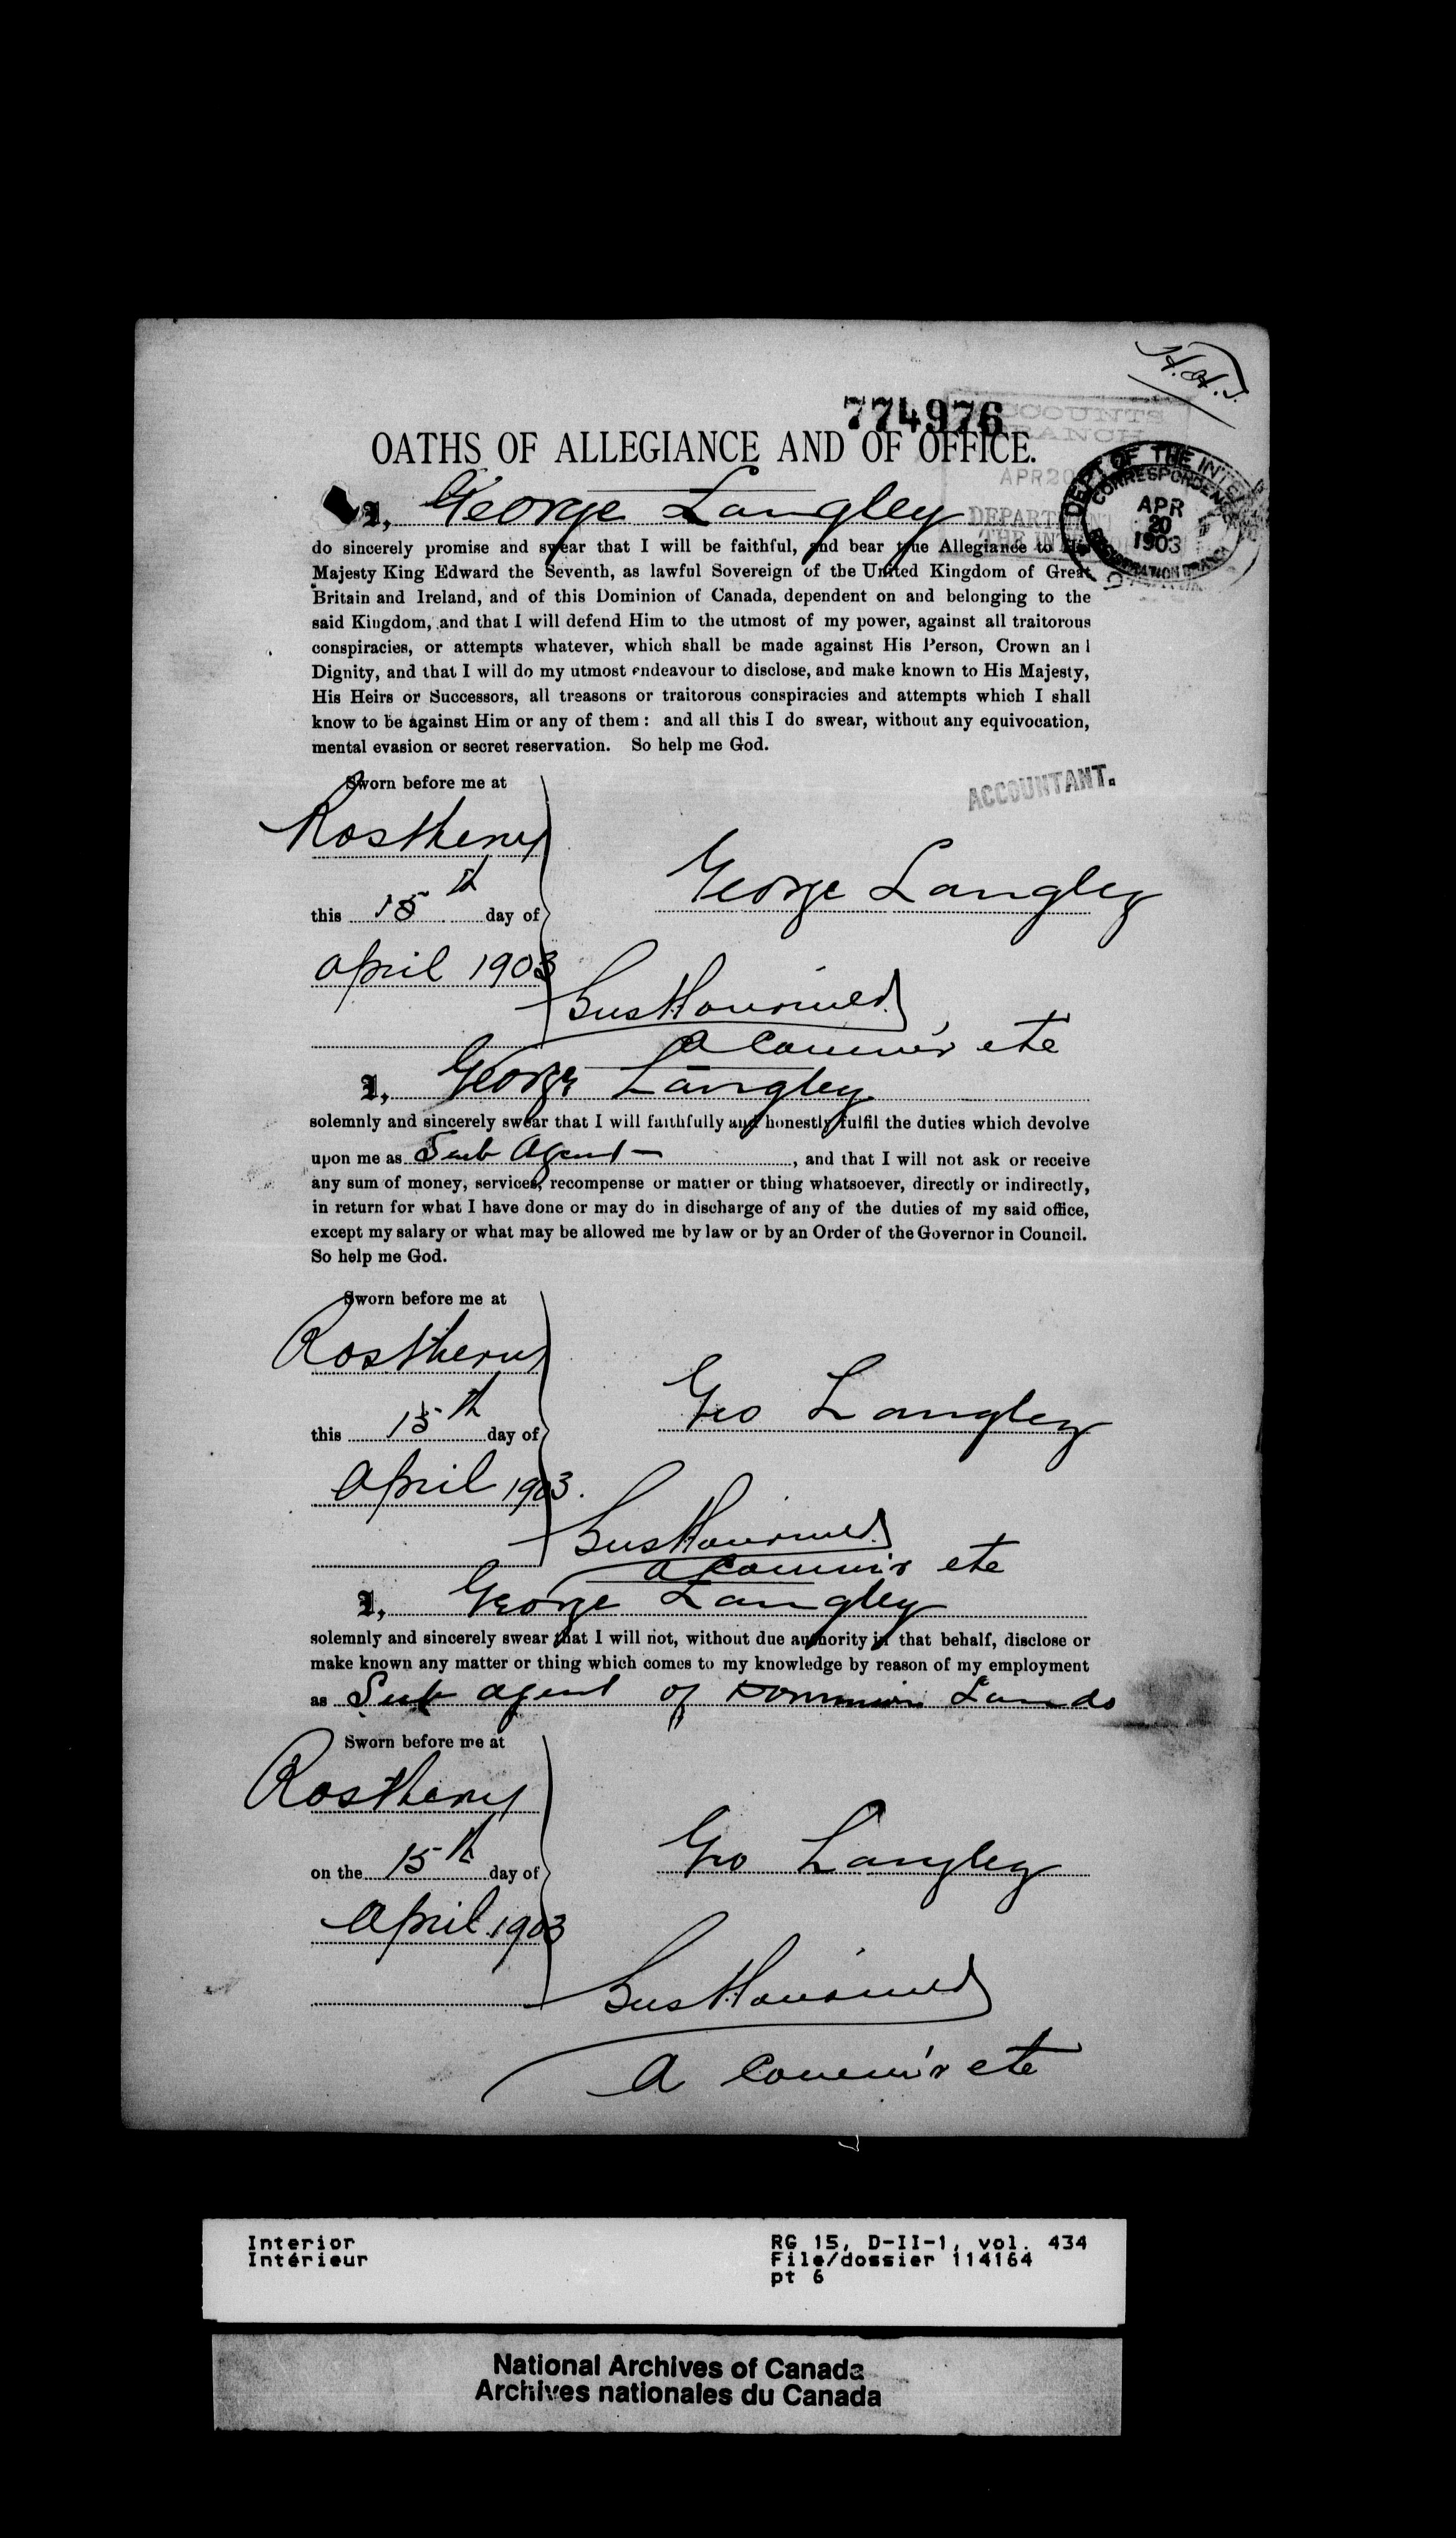 774976
ACCOUNTS
BRANCH
APR 20
DEPARTMENT
THE INTERIOR
DEPT OF THE INTERIOR
CORRESPONDENCE
APR
20
1903
REGISTRATION BRANCH
OATHS OF ALLEGIANCE AND OF OFFICE.
I, George Langley
do sincerely promise and swear that I will be faithful, and bear true Allegiance to His
Majesty King Edward the Seventh, as lawful Sovereign of the United Kingdom of Great
Britain and Ireland, and of this Dominion of Canada, dependent on and belonging to the
said Kingdom, and that I will defend Him to the utmost of my power, against all traitorous
conspiracies, or attempts whatever, which shall be made against His Person, Crown and
Dignity, and that I will do my utmost endeavour to disclose, and make known to His Majesty,
His Heirs or Successors, all treasons or traitorous conspiracies and attempts which I shall
know to be against Him or any of them : and all this I do swear, without any equivocation,
mental evasion or secret reservation. So help me God.
ACCOUNTANT.
Sworn before me at
Rosthern
this 15th day of
George Langley
April 1903
A Commr etc
I, George Langley
solemnly and sincerely swear that I will faithfully and honestly fulfil the duties which devolve
upon me as Sub Agent —, and that I will not ask or receive
any sum of money, services, recompense or matter or thing whatsoever, directly or indirectly,
in return for what I have done or may do in discharge of any of the duties of my said office,
except my salary or what may be allowed me by law or by an Order of the Governor in Council.
So help me God.
Sworn before me at
Rosthern
this 15th day of
Geo Langley
April 1903.
A Comm'r etc
I, George Langley
solemnly and sincerely swear that I will not, without due authority in that behalf, disclose or
make known any matter or thing which comes to my knowledge by reason of my employment
as Sub agent of Dominion Lands
Sworn before me at
Rosthern
on the 15th day of
Geo Langley
April 1903
A Comm'r etc
Interior
Intérieur
RG 15, D-II-1, vol. 434
File/dossier 114164
pt 6
National Archives of Canada
Archives nationales du Canada